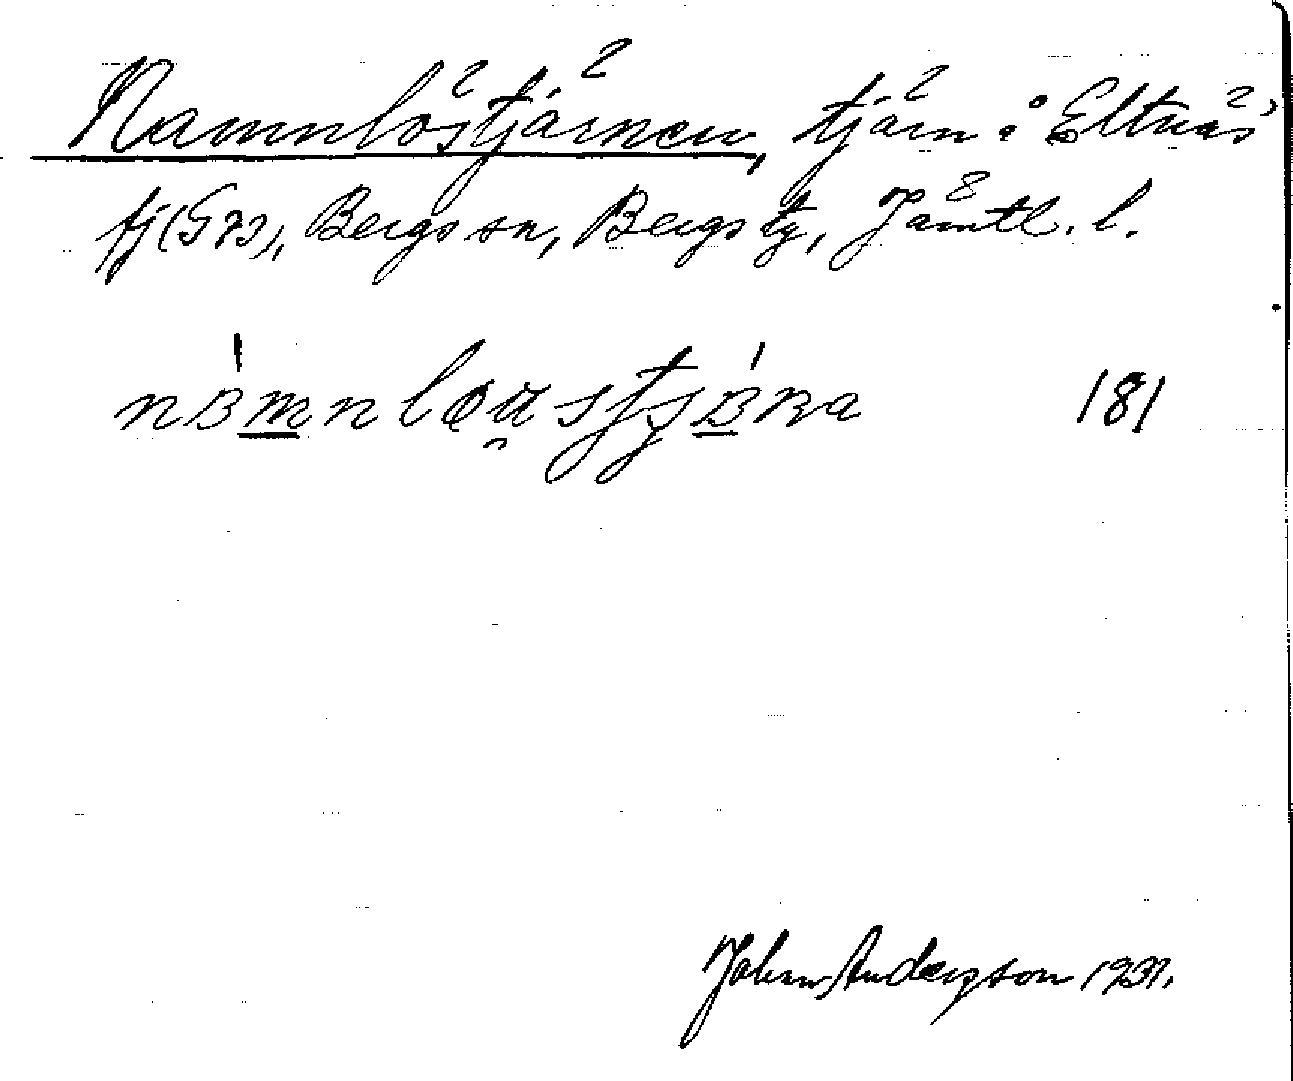 Namnlöstjärnen, tjärn i Eltnäs
fj (S73), Bergs sn, Bergs tg, Jämtl. l.
181
John Andersson 1931.